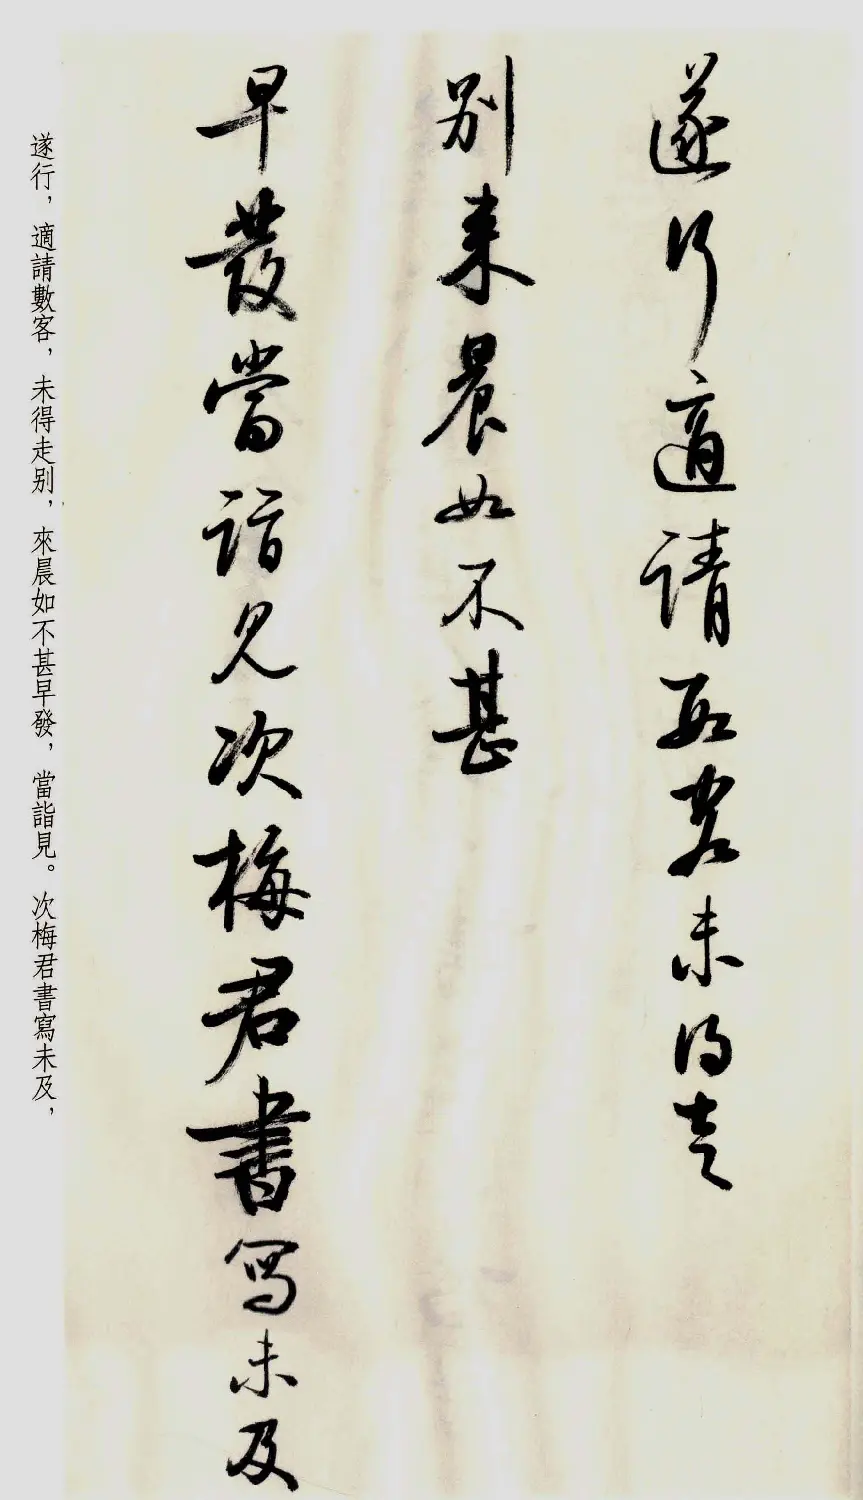 遂行適請數客未得走
别来晨如不甚
早發當詣見次梅君書寫未及
遂行，適請數客，未得走别，來晨如不甚早發，當詣見。次梅君書寫未及，